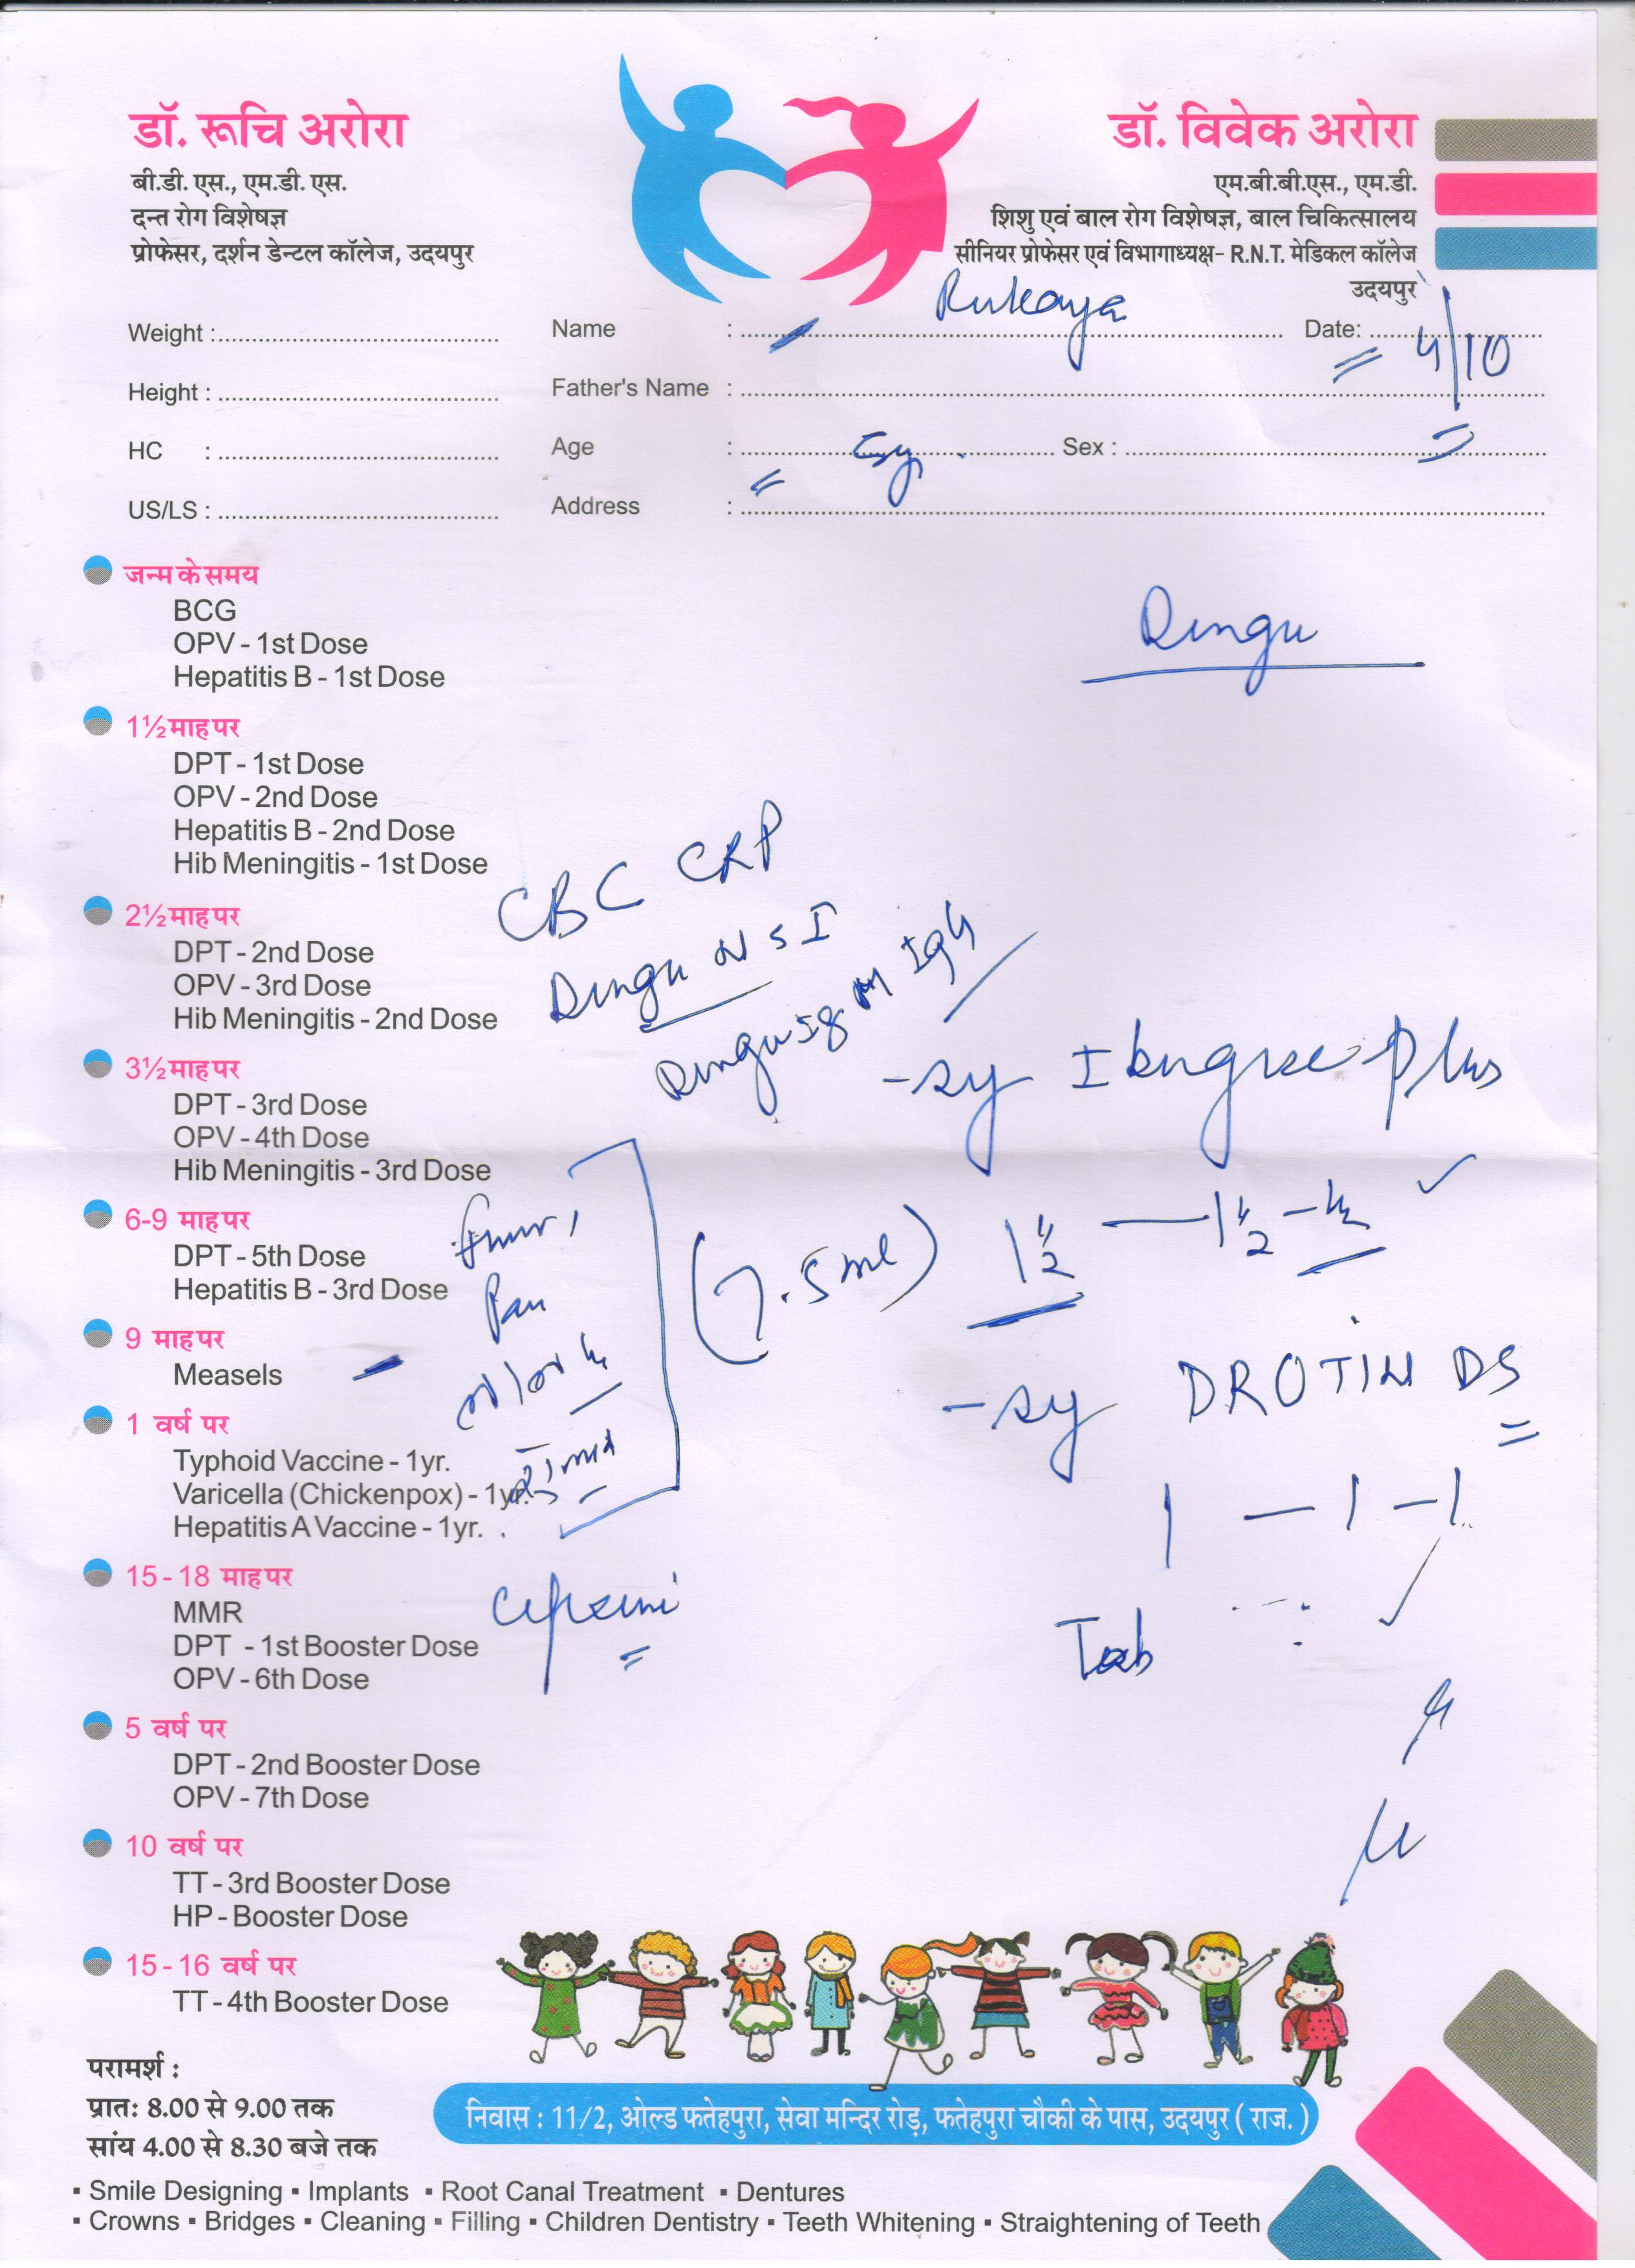 डॉ. रूचि अरोरा
बी.डी. एस., एम.डी. एस.
दन्त रोग विशेषज्ञ
प्रोफेसर, दर्शन डेन्टल कॉलेज, उदयपुर
डॉ. विवेक अरोरा
एम.बी.बी.एस., एम.डी.
शिशु एवं बाल रोग विशेषज्ञ, बाल चिकित्सालय
सीनियर प्रोफेसर एवं विभागाध्यक्ष- R.N.T. मेडिकल कॉलेज
उदयपुर
Weight : Name : Rukaya Date: 4/10
Height : Father's Name :
HC : Age : 5y. Sex :
US/LS : Address :
Dengu
जन्म के समय
BCG
OPV - 1st Dose
Hepatitis B - 1st Dose
1½ माह पर
DPT - 1st Dose
OPV - 2nd Dose
Hepatitis B - 2nd Dose
Hib Meningitis - 1st Dose
2½ माह पर
DPT - 2nd Dose
OPV - 3rd Dose
Hib Meningitis - 2nd Dose
3½ माह पर
DPT - 3rd Dose
OPV - 4th Dose
Hib Meningitis - 3rd Dose
6-9 माह पर
DPT - 5th Dose
Hepatitis B - 3rd Dose
9 माह पर
Measels
1 वर्ष पर
Typhoid Vaccine - 1yr.
Varicella (Chickenpox) - 1yr.
Hepatitis A Vaccine - 1yr.
15-18 माह पर
MMR
DPT - 1st Booster Dose
OPV - 6th Dose
5 वर्ष पर
DPT - 2nd Booster Dose
OPV - 7th Dose
10 वर्ष पर
TT - 3rd Booster Dose
HP - Booster Dose
15-16 वर्ष पर
TT - 4th Booster Dose
CBC CRP
Dengu NSI
Dengu IgM IgG
- sy Ibugesic Plus
(7.5ml) 1½ — 1½ -
- sy DROTIN DS
1 - 1 - 1
Tab
परामर्श :
प्रातः 8.00 से 9.00 तक
सांय 4.00 से 8.30 बजे तक
निवास : 11/2, ओल्ड फतेहपुरा, सेवा मन्दिर रोड़, फतेहपुरा चौकी के पास, उदयपुर ( राज. )
▪ Smile Designing ▪ Implants ▪ Root Canal Treatment ▪ Dentures
▪ Crowns ▪ Bridges ▪ Cleaning ▪ Filling ▪ Children Dentistry ▪ Teeth Whitening ▪ Straightening of Teeth